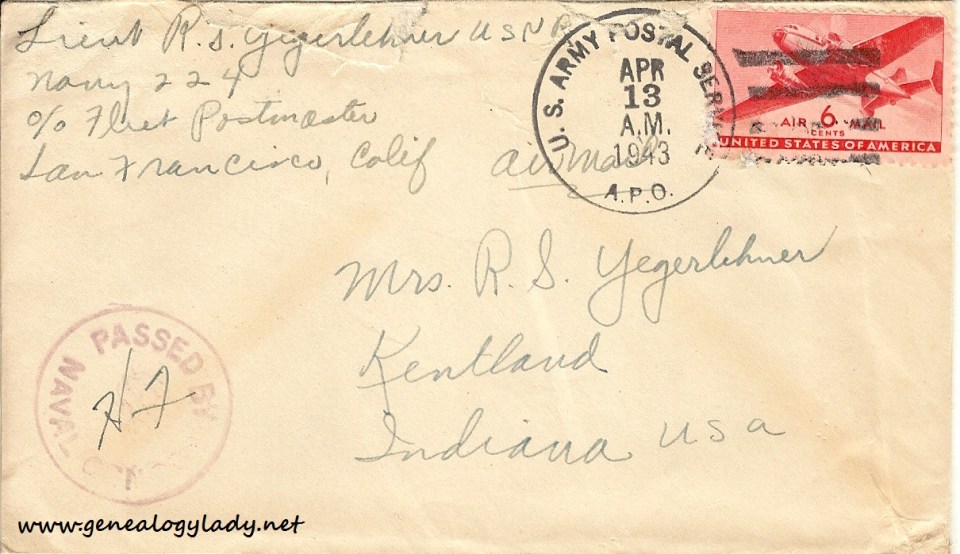 Lieut R. S. Yegerlehner USNR
Navy 224
c/o Fleet Postmaster
San Francisco, Calif
airmail
U. S. ARMY POSTAL SERVICE
APR
13
A.M.
1943
A.P.O.
AIR 6 MAIL
CENTS
UNITED STATES OF AMERICA
Mrs. R. S. Yegerlehner
Kentland
Indiana USA
PASSED BY
NAVAL CENSOR
www.genealogylady.net